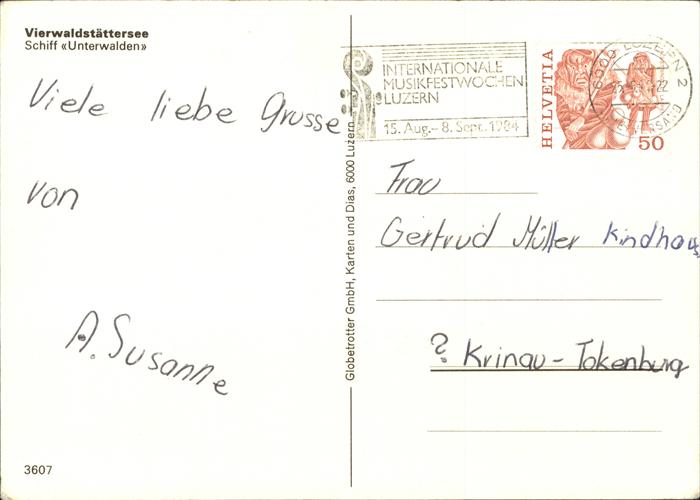 Vierwaldstättersee
Schiff «Unterwalden»
Viele liebe Grusse
von
A. Susanne
3607
Globetrotter GmbH, Karten und Dias, 6000 Luzern
INTERNATIONALE
MUSIKFESTWOCHEN
LUZERN
15. Aug. – 8. Sept. 1984
HELVETIA
50
6000 LUZERN 2
Frau
Gertrud Müller Kindhaus
? Krinau - Tokenburg